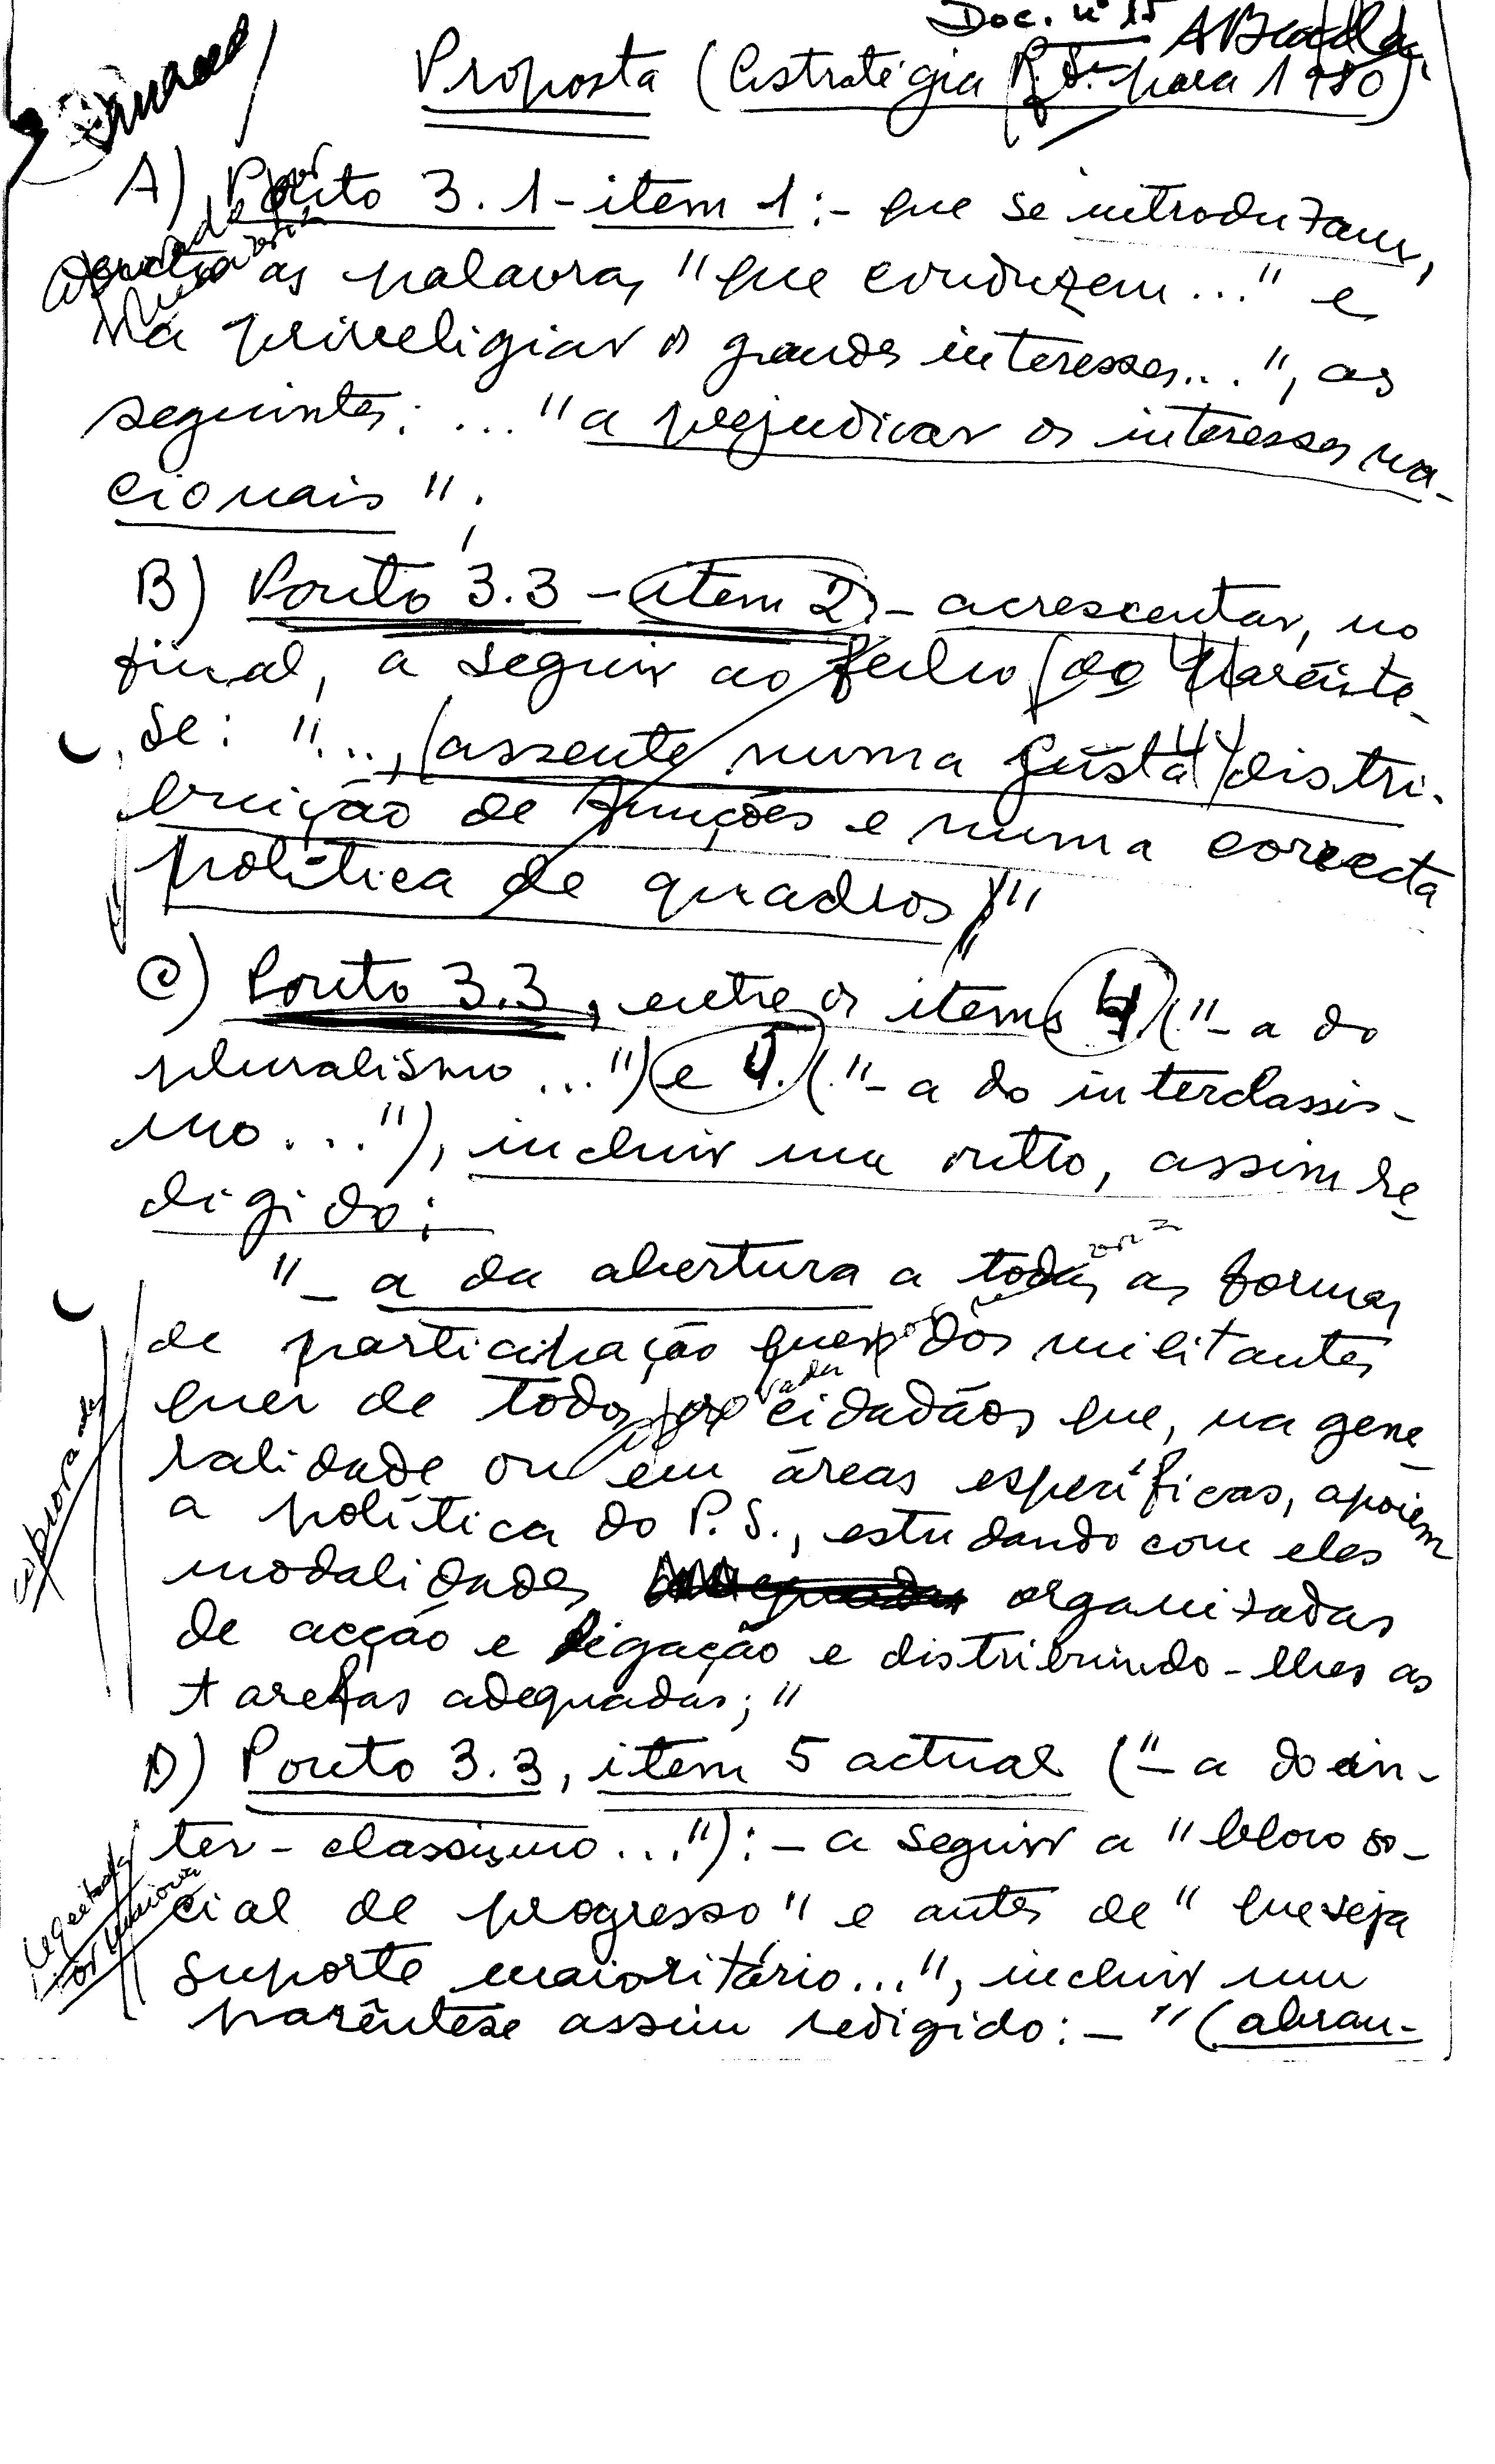 Doc. nº 15
Proposta (Estratégia P.S. para 1980)
A) Ponto 3.1 - item 1:- que se introduzam,
entre as palavras "que conduzem..." e
"a priveligiar os grandes interesses...", as
seguintes: ... "a prejudicar os interesses na-
cionais";
B) Ponto 3.3 - item 2:- acrescentar, no
final, a seguir ao fecho do parênte-
se: "..., (assente numa justa distri-
buição de funções e numa correcta
política de quadros)"
C) Ponto 3.3, entre os items 4 ("- a do
pluralismo...") e ("- a do interclassis-
mo..."), incluir um outro, assim re-
digido:
"- a da abertura a todas as formas
de participação quer dos militantes
quer de todos os cidadãos que, na gene-
ralidade ou em áreas específicas, apoiem
a política do P.S., estudando com eles
modalidades organizadas
de acção e ligação e distribuindo-lhes as
tarefas adequadas;"
D) Ponto 3.3, item 5 actual ("- a do in-
ter-classismo..."):- a seguir a "bloco so-
cial de progresso" e antes de "que seja
suporte maioritário...", incluir um
parêntese assim redigido:- "(abran-
rejeitada
por maioria